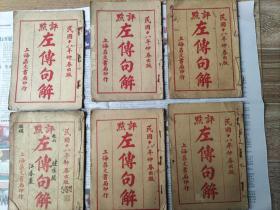 民國十八年仲春出版
評點
左傳句解
上海昌文書局印行
民國十八年仲春出版
評點
左傳句解
上海昌文書局印行
民國十八年仲春出版
評點
左傳句解
上海昌文書局印行
民國十八年仲春出版
評點
左傳句解
上海昌文書局印行
民國十八年仲春出版
評點
左傳句解
上海昌文書局印行
民國十八年仲春出版
評點
左傳句解
上海昌文書局印行